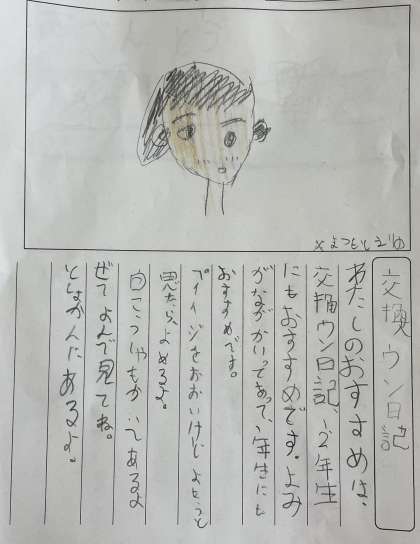 交換ウン日記
わたしのおすすめは、
交換ウン日記、1、2年生
にもおすすめです。よみ
がながかいってあって、1年生にも
おすすめです。
おおいけどよもうと
思たら、よめるよ。
もかいてあるよ
よんで見てね。
としょかんにあるよ。